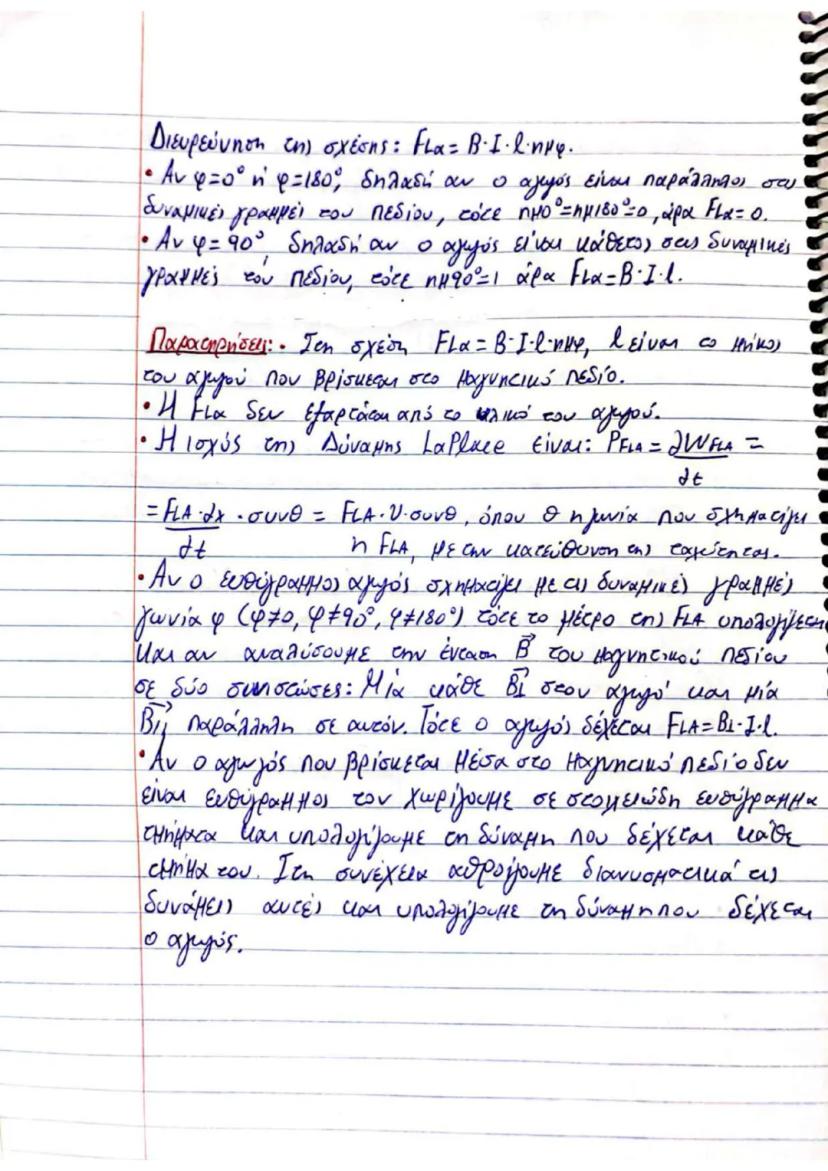 Διευρεύνηση της σχέσης: FLα = B·I·l·ημφ.
• Αν φ=0° ή φ=180°, δηλαδή αν ο αγωγός είναι παράλληλος στις
δυναμικές γραμμές του πεδίου, τότε ημ0°=ημ180°=0, άρα FLα=0.
• Αν φ=90°, δηλαδή αν ο αγωγός είναι κάθετος στις δυναμικές
γραμμές του πεδίου, τότε ημ90°=1 άρα FLα=B·I·l.
Παρατηρήσεις: • Στη σχέση FLα = B·I·l·ημφ, l είναι το μήκος
του αγωγού που βρίσκεται στο μαγνητικό πεδίο.
• Η FLα δεν εξαρτάται από το υλικό του αγωγού.
• Η ισχύς της Δύναμης LaPlace είναι: PFLA = dWFLA =
dt
= FLA·dx · συνθ = FLA·υ·συνθ, όπου θ η γωνία που σχηματίζει
dt η FLA, με την κατεύθυνση της ταχύτητας.
• Αν ο ευθύγραμμος αγωγός σχηματίζει με τις δυναμικές γραμμές
γωνία φ (φ≠0, φ≠90°, φ≠180°) τότε το μέτρο της FLA υπολογίζεται
και αν αναλύσουμε την ένταση B⃗ του μαγνητικού πεδίου
σε δύο συνιστώσες: Μία κάθε B⊥⃗ στον αγωγό και μία
B||⃗ παράλληλη σε αυτόν. Τότε ο αγωγός δέχεται FLA=B⊥·I·l.
• Αν ο αγωγός που βρίσκεται μέσα στο μαγνητικό πεδίο δεν
είναι ευθύγραμμος τον χωρίζουμε σε στοιχειώδη ευθύγραμμα
τμήματα και υπολογίζουμε τη δύναμη που δέχεται κάθε
τμήμα του. Στη συνέχεια αθροίζουμε διανυσματικά τις
δυνάμεις αυτές και υπολογίζουμε τη δύναμη που δέχεται
ο αγωγός.